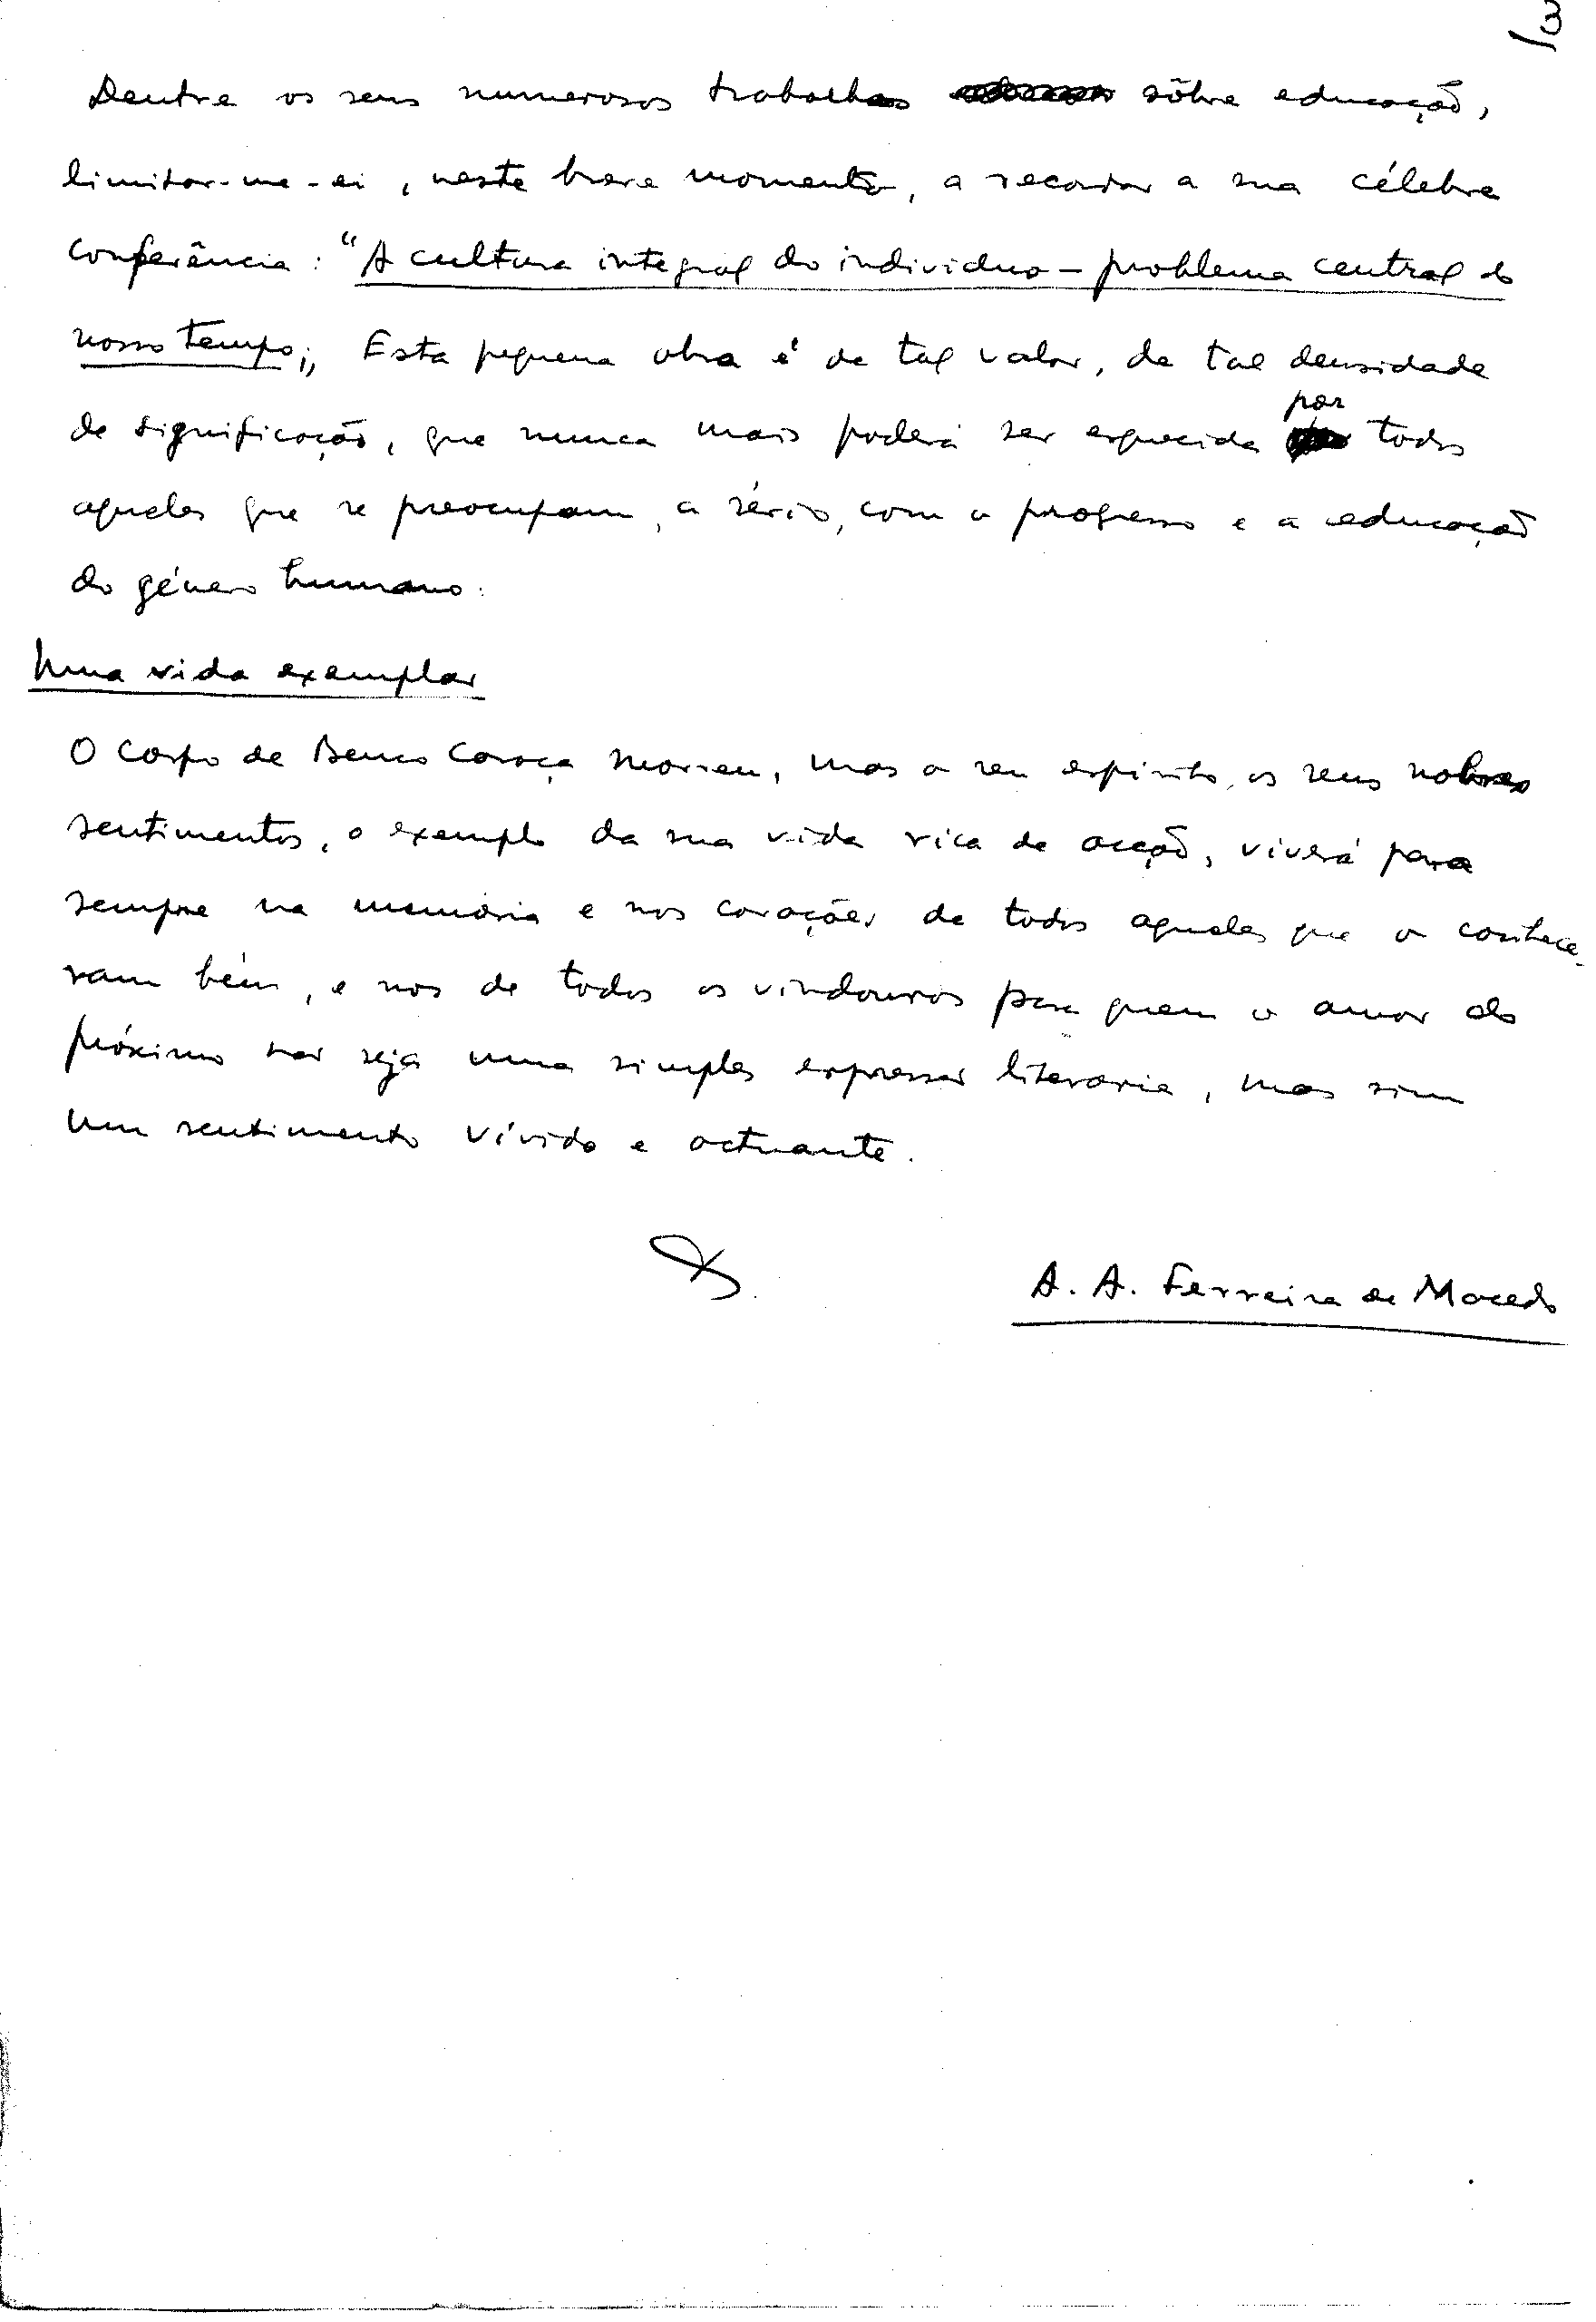 /3
Dentre os seus numerosos trabalhos sôbre educação,
limitar-me-ei, neste breve momento, a recordar a sua célebre
conferência: "A cultura integral do individuo - problema central do
nosso tempo;„ Esta pequena obra é de tal valor, de tal densidade
de significação, que nunca mais poderá ser esquecida por todos
aqueles que se preocupam, a sério, com o progresso e a educação
do género humano.
Uma vida exemplar
O corpo de Bento Caraça morreu, mas o seu espírito, os seus nobres
sentimentos, o exemplo da sua vida rica de acção, viverá para
sempre na memória e nos corações de todos aqueles que o conhece-
ram bem, e nos de todos os vindouros para quem o amor do
próximo não seja uma simples expressão literária, mas sim
um sentimento vívido e actuante.
A. A. Ferreira de Macedo